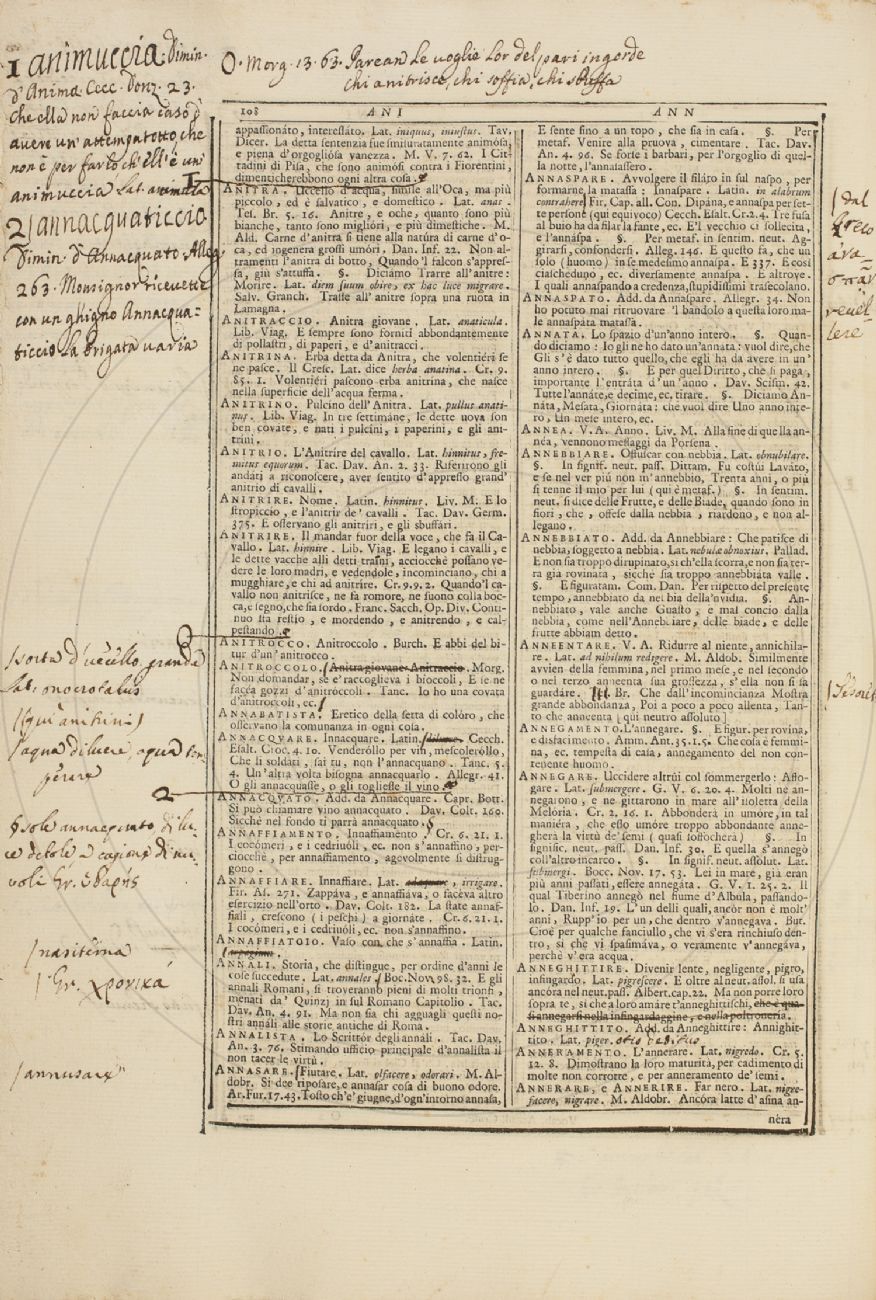 1 animuccia. Dimin.
d'Anima Cecc. Donz. 23.
che ella non faccia caso d'
avere un'attempatotto, che
non è per farlo ch'ell'è un'
animuccia Lat. animula
2 annacquaticcio
Dimin. d'Annacquato. Alleg.
263. Monsignor ricevette
con un ghigno Annacqua=
ticcio La brigata varia
O. Morg. 13. 63. Parean le voglie Lor del pari ingorde
Chi anitrisce, chi soffia, chi sbuffa
108 ANI ANN
appassionáto, interessáto. Lat. iniquus, iniustus. Tav.
Dicer. La detta sentenzia fue smisuratamente animósa,
e piena d'orgogliósa vanezza. M. V. 7. 62. I Cit-
tadini di Pisa, che sono animósi contra i Fiorentini,
dimenticherebbono ogni altra cosa.
ANITRA. Uccello d'acqua, simile all'Oca, ma più
piccolo, ed è salvatico, e domestico. Lat. anas.
Tes. Br. 5. 16. Anitre, e oche, quanto sono più
bianche, tanto sono migliori, e più dimestiche. M.
Ald. Carne d'anitra si tiene alla natúra di carne d'o-
ca, ed ingenera grossi umóri. Dan. Inf. 22. Non al-
tramenti l'anitra di botto, Quando 'l falcon s'appres-
sa, giù s'attuffa. §. Diciamo Trarre all'anitre:
Morire. Lat. diem suum obire, ex hac luce migrare.
Salv. Granch. Trasse all'anitre sopra una ruota in
Lamagna.
ANITRACCIO. Anitra giovane. Lat. anaticula.
Lib. Viag. E sempre sono forniti abbondantemente
di pollastri, di paperi, e d'anitracci.
ANITRINA. Erba detta da Anitra, che volentiéri se
ne pasce. Il Cresc. Lat. dice herba anatina. Cr. 9.
85. 1. Volentiéri pascono erba anitrina, che nasce
nella superficie dell'acqua ferma.
ANITRINO. Pulcino dell'Anitra. Lat. pullus anati-
nus. Lib. Viag. In tre settimáne, le dette uova son
ben covate, e nati i pulcini, i paperini, e gli ani-
trini.
ANITRIO. L'Anitrire del cavallo. Lat. hinnitus, fre-
mitus equorum. Tac. Dav. An. 2. 33. Riferirono gli
andáti a riconoscere, aver sentito d'appresso grand'
anitrio di cavalli.
ANITRIRE. Nome. Latin. hinnitus. Liv. M. E lo
stropiccio, e l'anitrir de' cavalli. Tac. Dav. Germ.
375. E osservano gli anitriri, e gli sbuffári.
ANITRIRE. Il mandar fuor della voce, che fa il Ca-
vallo. Lat. hinnire. Lib. Viag. E legano i cavalli, e
le dette vacche alli detti trasni, acciocchè possano ve-
dere le loro madri, e vedendole, incominciano, chi a
mugghiare, e chi ad anitrire. Cr. 9. 9. 2. Quando 'l ca-
vallo non anitrisce, ne fa romore, ne suono colla boc-
ca, e segno, che sia sordo. Franc. Sacch. Op. Div. Conti-
nuo sta restio, e mordendo, e anitrendo, e cal-
pestando.
ANITROCCO. Anitroccolo. Burch. E abbi del bi-
tur d'un'anitrocco.
ANITROCCOLO. Anitra giovane. Anitraccio. Morg.
Non domandar, se e' raccoglieva i bioccoli, E se ne
facea gozzi d'anitróccoli. Tanc. Io ho una covata
d'anitróccoli, ec.
ANNABATISTA. Eretico della setta di colóro, che
osservano la comunanza in ogni cosa.
ANNACQUARE. Inacquare. Latin. diluere. Cecch.
Esalt. Croc. 4. 10. Venderóllo per vin, mescolerôllo,
Che li soldáti, sai tu, non l'annacquano. Tanc. 5.
4. Un'altra volta bisogna annacquarlo. Allegr. 41.
O gli annacquasse, o gli togliesse il vino.
ANNACQVATO. Add. da Annacquare. Capr. Bott.
Si può chiamare vino annacquato. Dav. Colt. 160.
Sicchè nel fondo ti parrà annacquato.
ANNAFFIAMENTO. Innaffiamento. Cr. 6. 21. 1.
I cocómeri, e i cedriuóli, ec. non s'annaffino, per-
ciocchè, per annaffiamento, agevolmente si distrug-
gono.
ANNAFFIARE. Innaffiare. Lat. adaquare, irrigare.
Fir. As. 271. Zappáva, e annaffiáva, o facéva altro
esercizio nell'orto. Dav. Colt. 182. La state annaf-
fiali, crescono (i peschi) a giornáte. Cr. 6. 21. 1.
I cocómeri, e i cedriuóli, ec. non s'annaffino.
ANNAFFIATOIO. Vaso con che s'annaffia. Latin.
ANNALI. Storia, che distingue, per ordine d'anni le
cose succedute. Lat. annales. Boc. Nov. 98. 32. E gli
annali Romani, si troveranno pieni di molti trionfi,
menáti da' Quinzj in sul Romano Capitolio. Tac.
Dav. An. 4. 91. Ma non sia chi agguagli questi no-
stri annáli alle storie antiche di Roma.
ANNALISTA. Lo Scrittór degli annáli. Tac. Dav.
An. 3. 76. Stimando ufficio principale d'annalista il
non tacer le virtù.
ANNASARE. Fiutare. Lat. olfacere, odorari. M. Al-
dobr. Si dee riposáre, e annasár cosa di buono odore.
Ar. Fur. 17. 43. Tosto ch'e' giugne, d'ogn'intorno annasa,
E sente sino a un topo, che sia in casa. §. Per
metaf. Venire alla pruova, cimentare. Tac. Dav.
An. 4. 96. Se forse i barbari, per l'orgoglio di quel-
la notte, l'annasassero.
ANNASPARE. Avvolgere il filáto in sul naspo, per
formarne la matassa: Innaspare. Latin. in alabrum
contrahere. Fir. Cap. all. Con. Dipána, e annaspa per set-
te persone (qui equivoco) Cecch. Esalt. Cr. 2. 4. Tre fusa
al buio ha da filar la fante, ec. E'l vecchio ci sollecita,
e l'annáspa. §. Per metaf. in sentim. neut. Ag-
girarsi, confondersi. Alleg. 146. E questo fa, che un
solo (huomo) in se medesimo annaspa. E 337. E così
ciaschedúno, ec. diversamente annaspa. E altrove.
I quali annaspando a credenza, stupidissimi trasecolano.
ANNASPATO. Add. da Annaspare. Allegr. 34. Non
ho potuto mai ritruovare 'l bandolo a questa loro ma-
le annaspáta matassa.
ANNATA. Lo spazio d'un'anno intero. §. Quan-
do diciamo: Io gli ne ho dato un'annáta: vuol dire, che
Gli s'è dato tutto quello, che egli ha da avere in un'
anno intero. §. E per quel Diritto, che si paga,
importante l'entráta d'un'anno. Dav. Scism. 42.
Tutte l'annáte, e decime, ec. tirare. §. Diciamo An-
náta, Mesata, Giornáta: che vuol dire Uno anno inte-
ro, Un mese intero, ec.
ANNEA. V. A. Anno. Liv. M. Alla fine di quella an-
néa, vennono messaggi da Porsena.
ANNEBBIARE. Offuscar con nebbia. Lat. obnubilare.
§. In signif. neut. pass. Dittam. Fu costúi Laváto,
e se nel ver piú non m'annebbio, Trenta anni, o più
si tenne il mio per lui (qui è metaf.) §. In sentim.
neut. si dice delle Frutte, e delle Biade, quando sono in
fiori, che, offese dalla nebbia, riardono, e non al-
legano.
ANNEBBIATO. Add. da Annebbiare: Che patisce di
nebbia, soggetto a nebbia. Lat. nebulæ obnoxius. Pallad.
E non sia troppo dirupinato, si ch'ella scorra, e non sia ter-
ra già rovinata, sicchè sia troppo annebbiáta valle.
§. E figuratam. Com. Dan. Per rispetto del presente
tempo, annebbiato da nebbia della 'nvidia. §. An-
nebbiato, vale anche Guasto, e mal concio dalla
nebbia, come nell'Annebbiare, delle biade, e delle
frutte abbiam detto.
ANNEENTARE. V. A. Ridurre al niente, annichila-
re. Lat. ad nibilum redigere. M. Aldob. Similmente
avvien della femmina, nel primo mese, e nel secondo
o nel terzo anneenta sua grossezza, s'ella non si sa
guardáre. Br. Che dall'incomincianza Mostra
grande abbondanza, Poi a poco a poco allenta, Tan-
to che anneenta [qui neutro assoluto]
ANNEGAMENTO. L'annegare. §. E figur. per rovina,
e disfacimento. Amm. Ant. 35. 1. 5. Che cosa è femmi-
na, ec. tempesta di casa, annegamento del non con-
tenente huomo.
ANNEGARE. Uccidere altrúi col sommergerlo: Affo-
gare. Lat. submergere. G. V. 6. 20. 4. Molti ne an-
negarono, e ne gittarono in mare all'isoletta della
Melória. Cr. 2. 16. 1. Abbonderà in umóre, in tal
maniéra, che esso umóre troppo abbondante anne-
gherà la virtù de' semi (quasi soffocherà) §. In
signific. neut. pass. Dan. Inf. 30. E quella s'annegò
coll'altro incarco. §. In signif. neut. assolut. Lat.
submergi. Bocc. Nov. 17. 53. Lei in mare, già eran
più anni passati, essere annegáta. G. V. 1. 25. 2. Il
qual Tiberino annegò nel fiume d'Albula, passando-
lo. Dan. Inf. 19. L'un delli quali, ancór non è molt'
anni, Rupp'io per un, che dentro v'annegava. But.
Cioè per qualche fanciullo, che vi s'era rinchiuso den-
tro, si che vi spasimáva, o veramente v'annegáva,
perchè v'era acqua.
ANNEGHITTIRE. Divenir lente, negligente, pigro,
infingardo. Lat. pigrescere. E oltre al neut. assol. si usa
ancóra nel neut. pass. Albert. cap. 22. Ma non porre loro
sopra te, si che a loro amáre t'anneghittischi, che è qua-
si annegarsi nella infingardaggine, e nella poltroneria.
ANNEGHITTITO. Add. da Anneghittire: Annighit-
tito. Lat. piger. otio deditus
ANNERAMENTO. L'annerare. Lat. nigredo. Cr. 5.
12. 8. Dimostrano la loro maturità, per cadimento di
molte non corrotte, e per anneramento de' semi.
ANNERARE, e ANNERIRE. Far nero. Lat. nigre-
facere, nigrare. M. Aldobr. Ancóra latte d'asina an-
néra
sorta d'uccello grande
Lat. onocrotalus
(qui anitrini)
aqua diluere, aqua tem-
perare
§ sole annacquato di lu-
ce debole a cagione di nu-
vole Gr.
nasiterna
Gr. χρονικά
annusare
dal
Greco